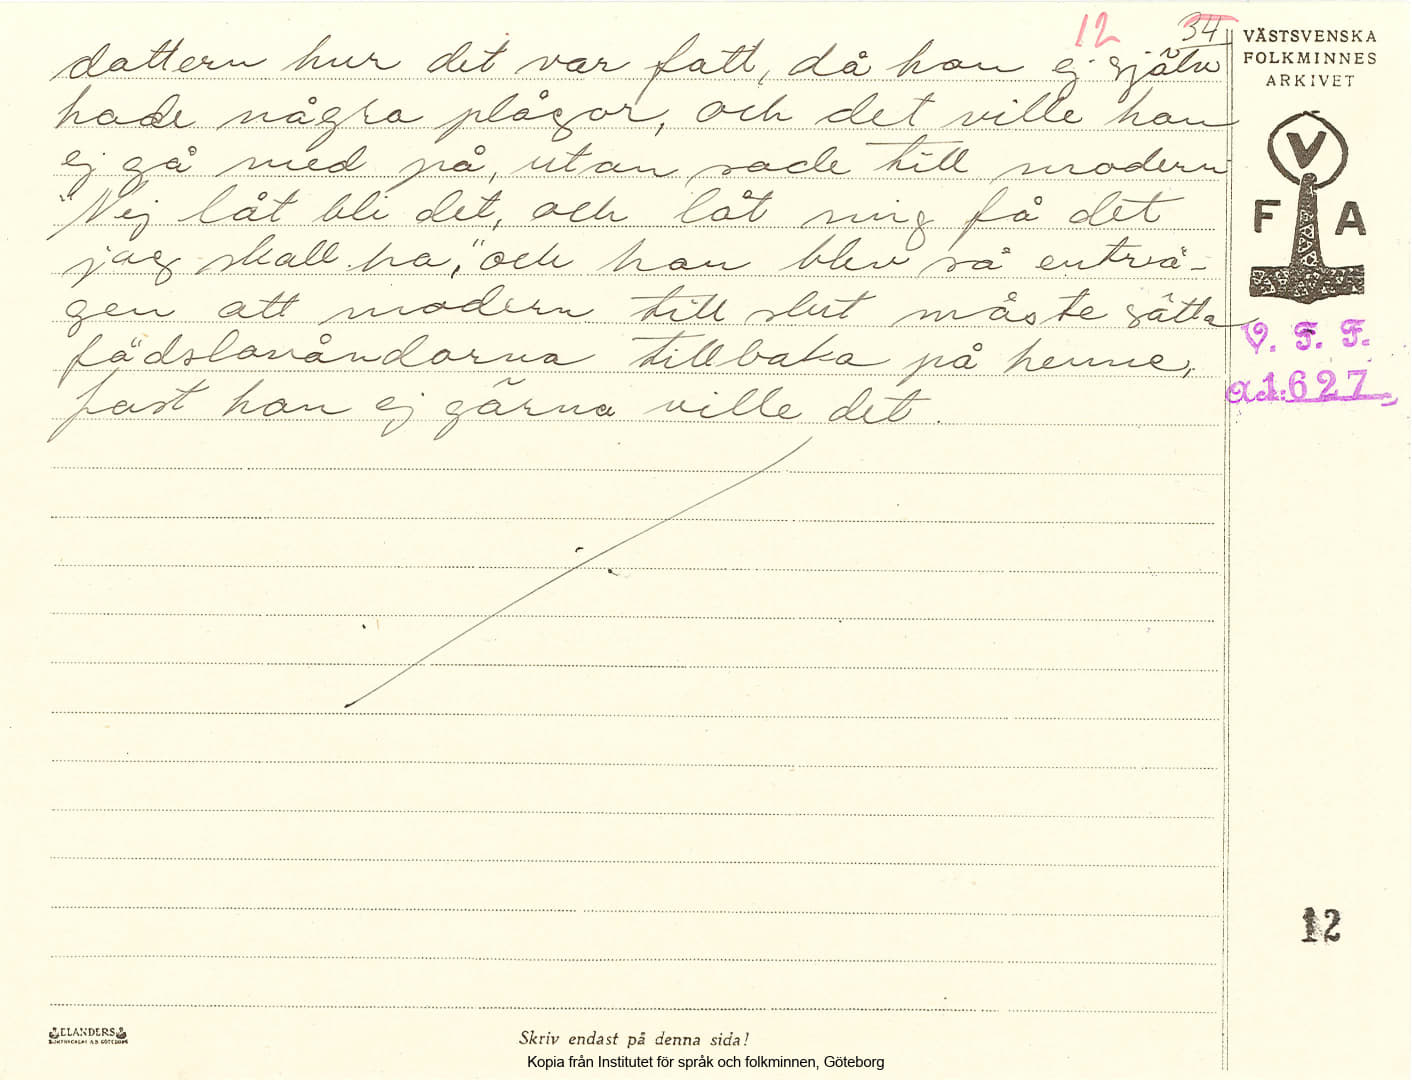 12 34
dattern hur det var fatt, då han ej själv
hade några plågor, och det ville han
ej gå med på, utan sade till modern
"Nej låt bli det, och låt mig få det
jag skall ha," och han blev så enträ-
gen att modern till slut måste sätta
födslovåndorna tillbaka på henne,
fast han ej gärna ville det.
VÄSTSVENSKA
FOLKMINNES
ARKIVET
V
F A
V. F. F.
1627
12
ELANDERS
Skriv endast på denna sida!
Kopia från Institutet för språk och folkminnen, Göteborg